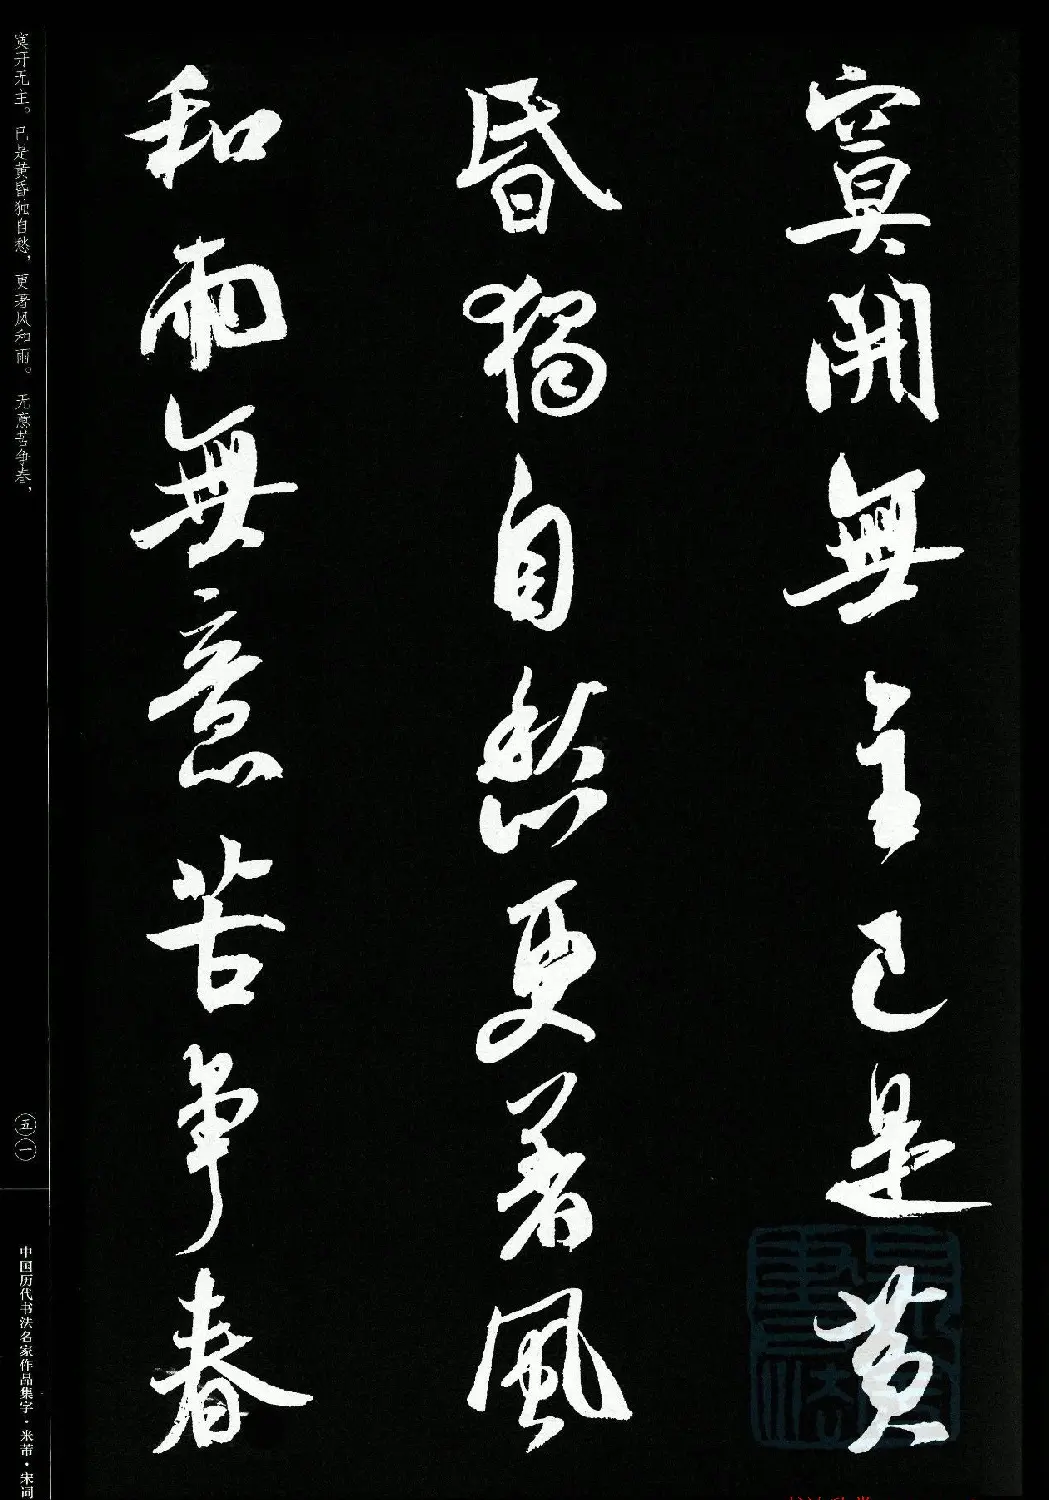 寞開無主已是黄
昏獨自愁更著風
和雨無意苦争春
寞开无主。已是黄昏独自愁，更著风和雨。无意苦争春，
五一
中国历代书法名家作品集字·米芾·宋词